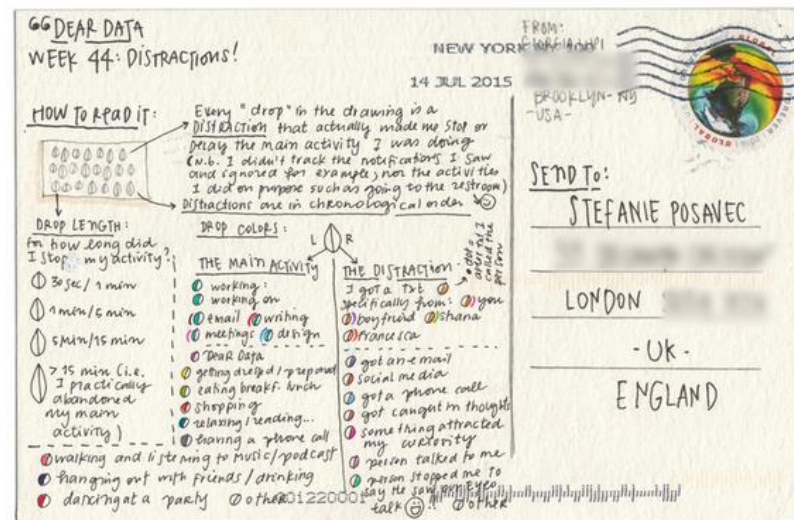 DEAR DATA
WEEK 44: DISTRACTIONS!
HOW TO READ IT:
Every "drop" in the drawing is a
DISTRACTION that actually made me stop or
delay the main activity I was doing
(N.B. I didn't track the notifications I saw
and ignored for example, nor the activities
I did on purpose such as going to the restroom)
Distractions are in chronological order
DROP LENGTH:
for how long did
I stop my activity?
30 sec/ 1 min
1 min/5 min
5 min/15 min
> 15 min (i.e.
I practically
abandoned
my main
activity)
DROP COLORS:
L R
THE MAIN ACTIVITY
working:
working on
email writing
meetings design
Dear Data
getting dresed/prepared
eating breakf. lunch
shopping
relaxing/reading...
having a phone call
walking and listening to music/podcast
hanging out with friends/drinking
dancing at a party other
THE DISTRACTION
I got a txt
specifically from: you
boyfriend shana
francesca
called the
person
got an email
social media
got a phone call
got caught in thoughts
something attracted
my curiosity
person talked to me
person stopped me to
say he saw our Eyeo
talk !! other
01220001
NEW YORK NY
14 JUL 2015
FROM:
GIORGIA LUPI
BROOKLYN - NY
-USA-
GLOBAL
FOREVER
SEND TO:
STEFANIE POSAVEC
LONDON
- UK -
ENGLAND